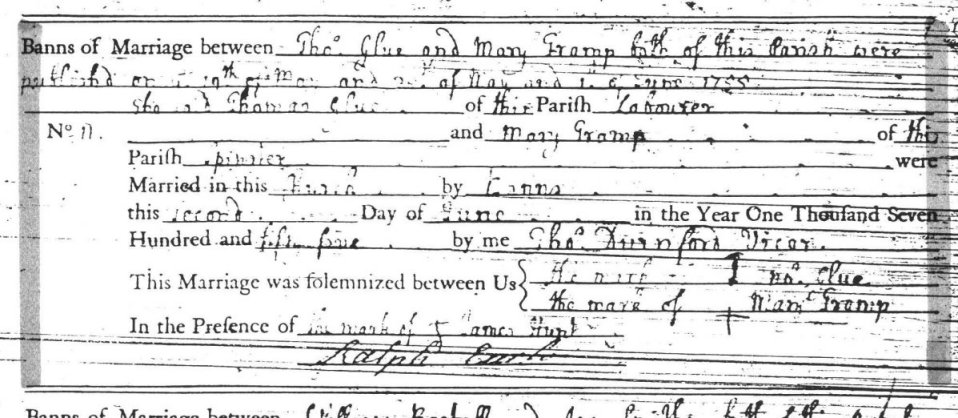 Banns of Marriage between Tho.s Clue and Mary Gramp both of this Parish were
published on 19th of May and of May and 1st of June 1755
The said Thomas Clue of this Parish Labourer
No. 11. and Mary Gramp of this
Parish spinster were
Married in this Church by Banns
this second Day of June in the Year One Thousand Seven
Hundred and fifty five by me Tho.s Durnford Vicar.
This Marriage was solemnized between Us The mark Tho.s Clue
the mark of Mary Gramp
In the Presence of the mark of James Hunt
Ralph
Banns of Marriage between